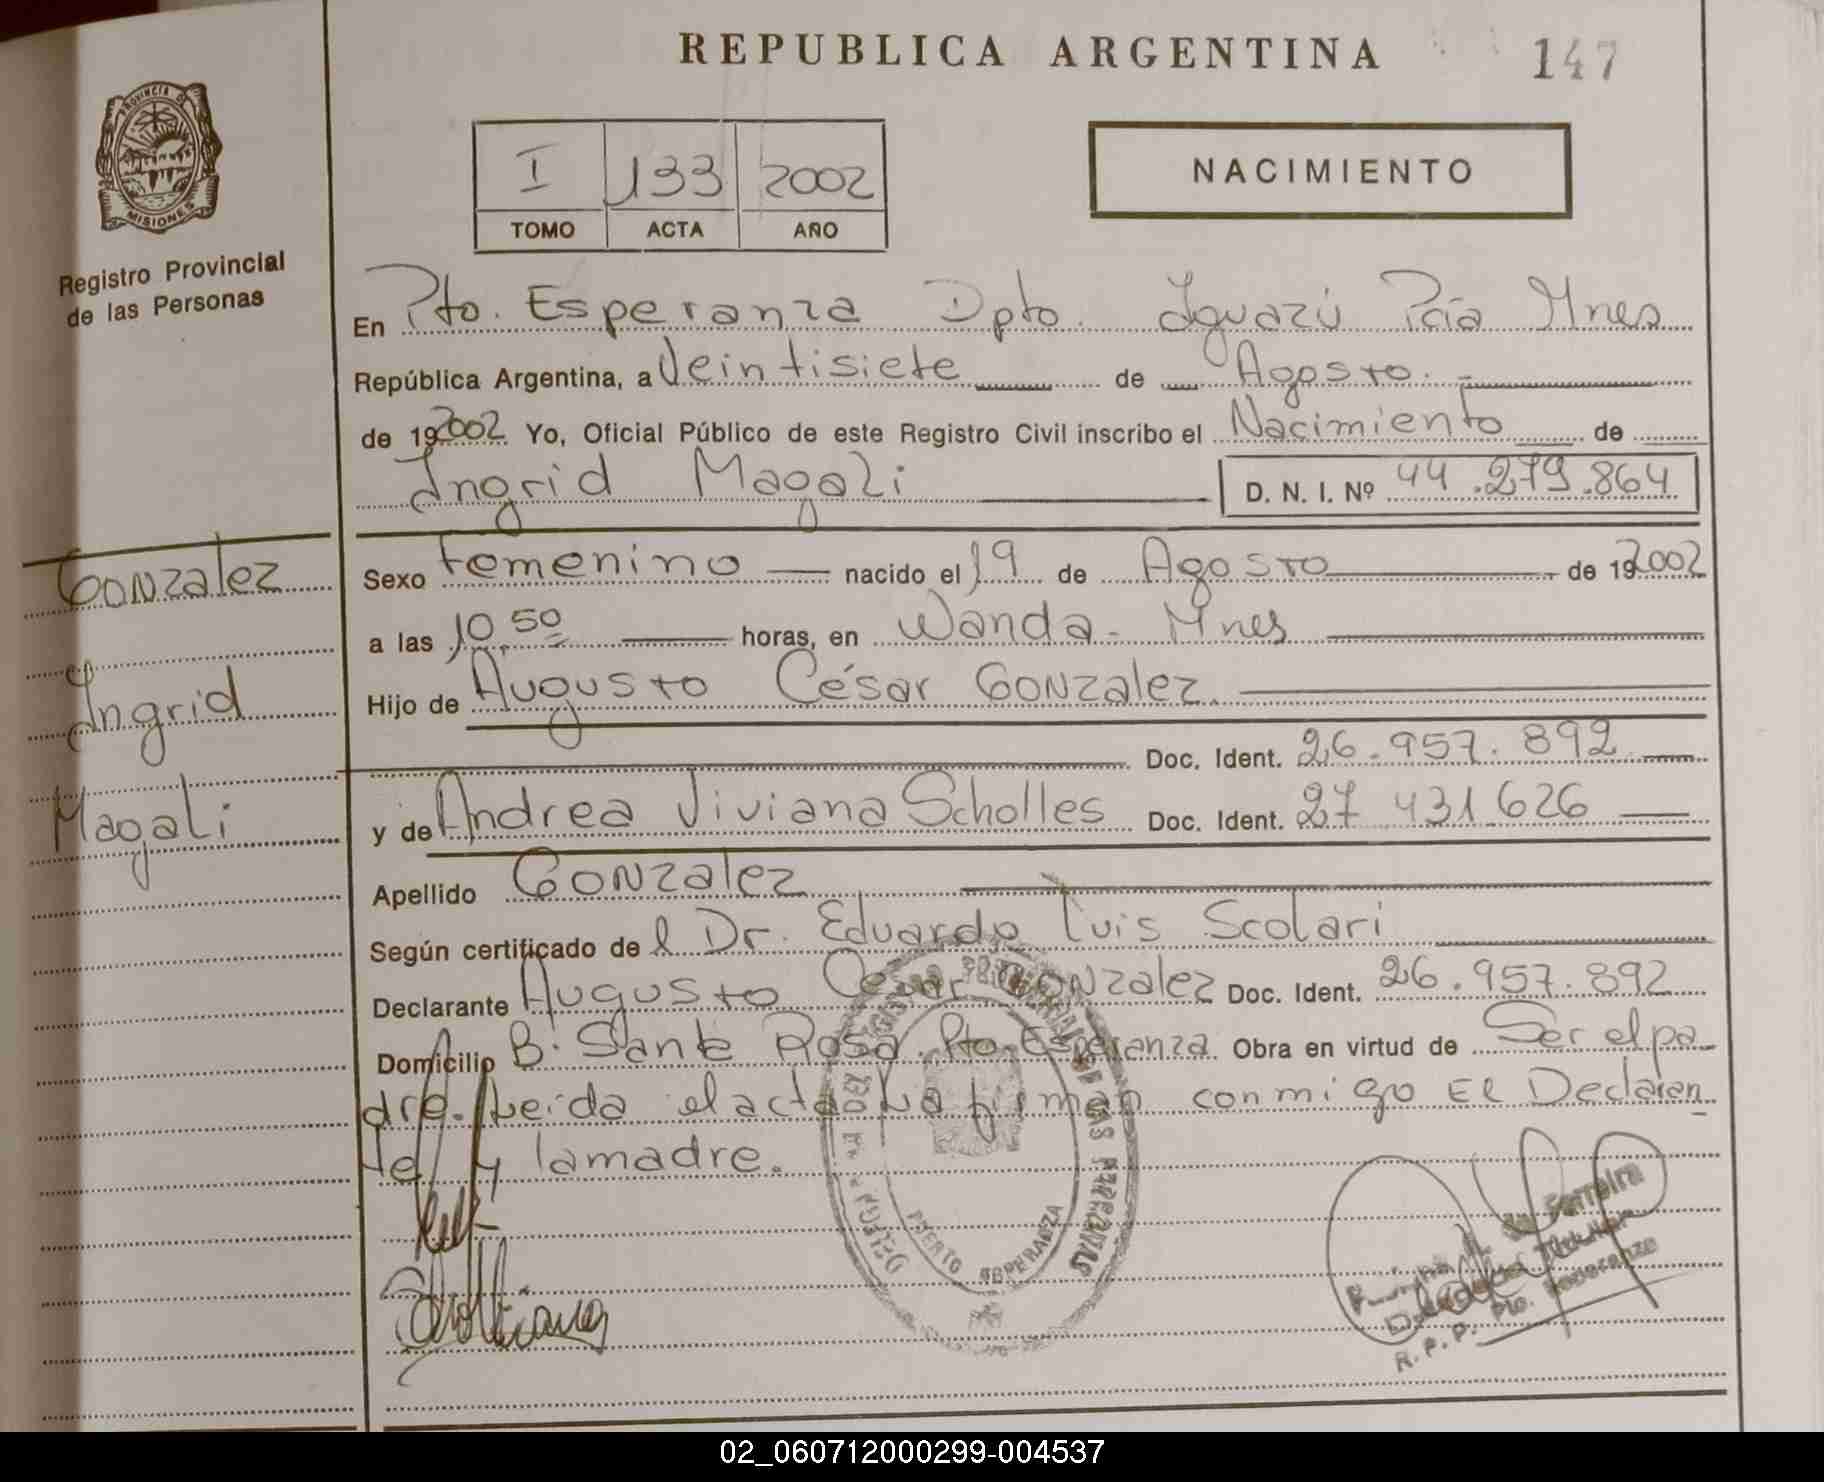 REPUBLICA ARGENTINA
147
PROVINCIA DE
MISIONES
Registro Provincial
de las Personas
I 133 2002
TOMO ACTA AÑO
NACIMIENTO
En Pto. Esperanza Dpto. Iguazú Pcia Mnes
República Argentina, a Veintisiete de Agosto.
de 192002 Yo, Oficial Público de este Registro Civil inscribo el Nacimiento de
Ingrid Magali D. N. I. Nº 44.279.864
Gonzalez
Ingrid
Magali
Sexo Femenino nacido el 19 de Agosto de 192002
a las 10,50 horas, en Wanda - Mnes
Hijo de Augusto César Gonzalez.
Doc. Ident. 26.957.892
y de Andrea Viviana Scholles Doc. Ident. 27 431.626
Apellido Gonzalez
Según certificado de l Dr. Eduardo Luis Scolari
Declarante Augusto Cesar Gonzalez Doc. Ident. 26.957.892
Domicilio B: Santa Rosa. Pto. Esperanza. Obra en virtud de Ser el pa
dre. Leida el acta La firman conmigo El Declaran
te y la madre.
PUERTO ESPERANZA
Ferreira
Delegada Titular
R. P. P. Pto. Esperanza
02_060712000299-004537